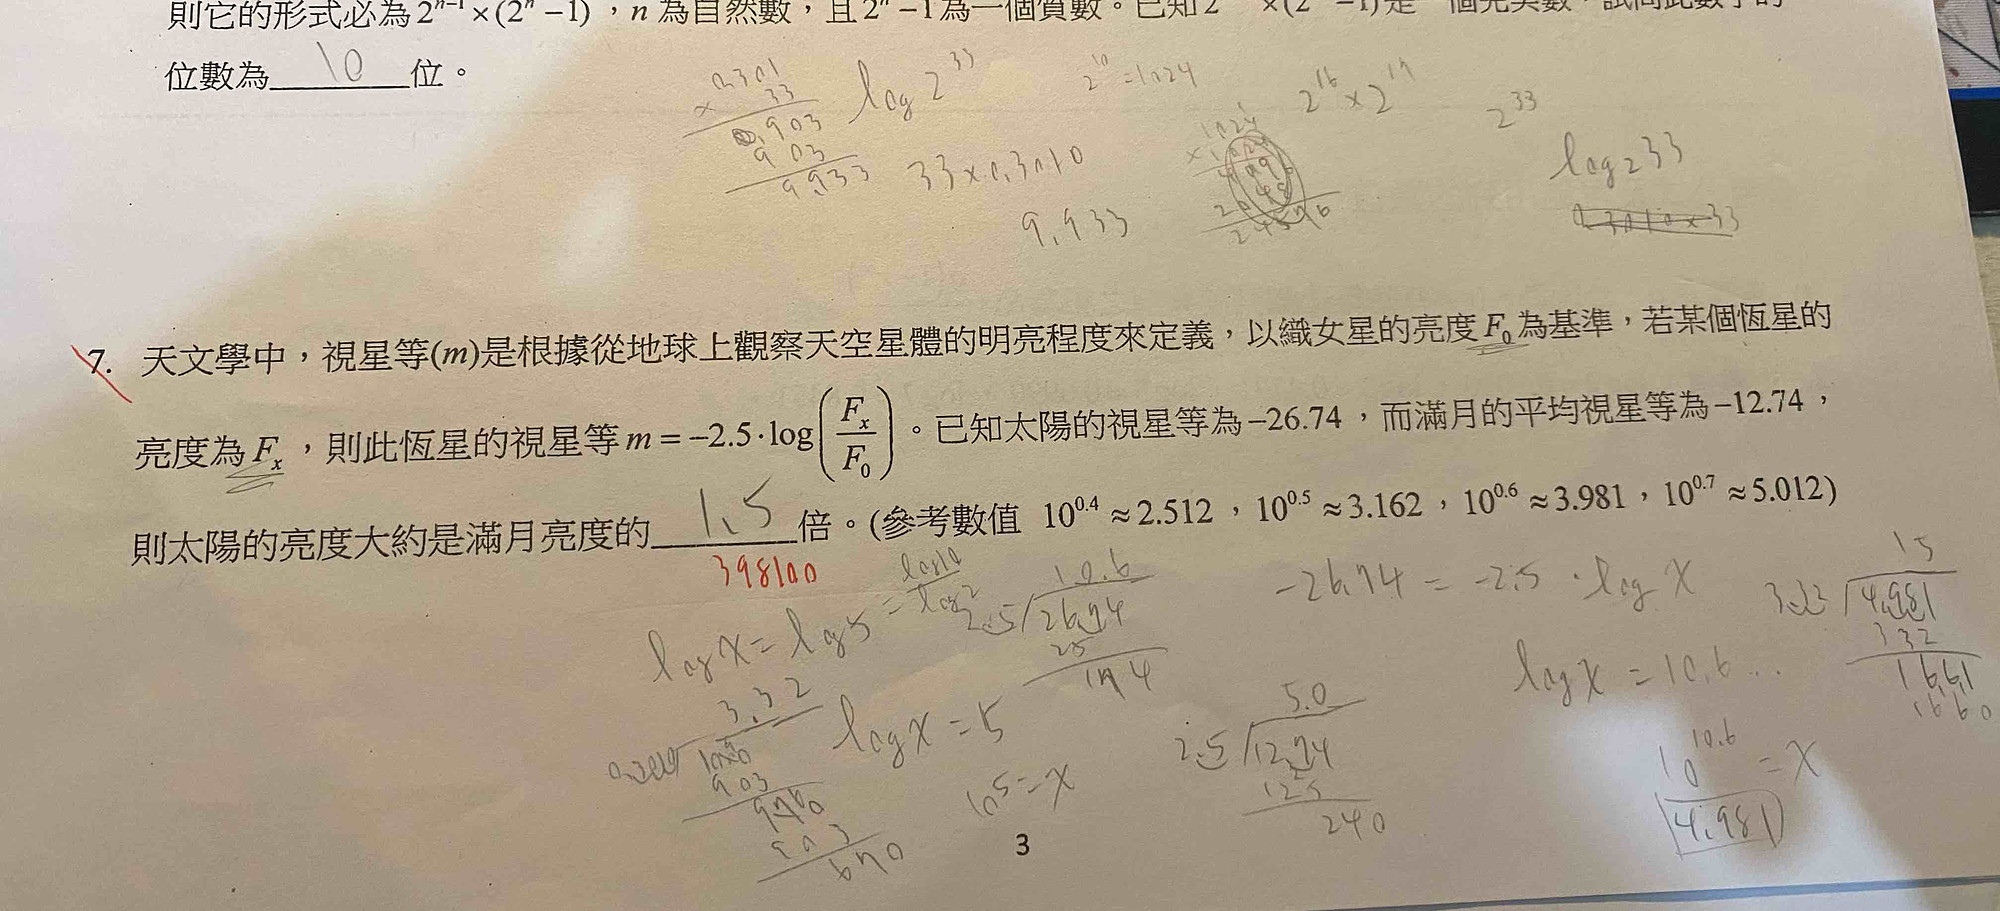 則它的形式必為 2ⁿ⁻¹×(2ⁿ−1)，n 為自然數，且 2ⁿ−1 為一個質數。已知 2 ×(2 −1)是一個完美數，試問此數字的
位數為 10 位。
0.301
× 33
903
903
9.933
log 2³³
33×0.3010
9.933
2¹⁰=1024
2¹⁶×2¹⁷
2³³
log 2³³
0.3010×33
7. 天文學中，視星等(m)是根據從地球上觀察天空星體的明亮程度來定義，以織女星的亮度 F₀ 為基準，若某個恆星的
亮度為 Fₓ，則此恆星的視星等 m = −2.5·log(Fₓ/F₀)。已知太陽的視星等為 −26.74，而滿月的平均視星等為 −12.74，
則太陽的亮度大約是滿月亮度的 1.5 倍。(參考數值 10^0.4 ≈ 2.512，10^0.5 ≈ 3.162，10^0.6 ≈ 3.981，10^0.7 ≈ 5.012)
398100
log x = log 5 = log10/log2
10.6
2.5 26.74
25
174
−26.74 = −2.5 · log x
log x = 10.6...
10^10.6 = x
4.981
15
3.32 4.981
332
1661
1660
3.32
903
log x = 5
10⁵ = x
5.0
2.5 12.74
125
240
670
3